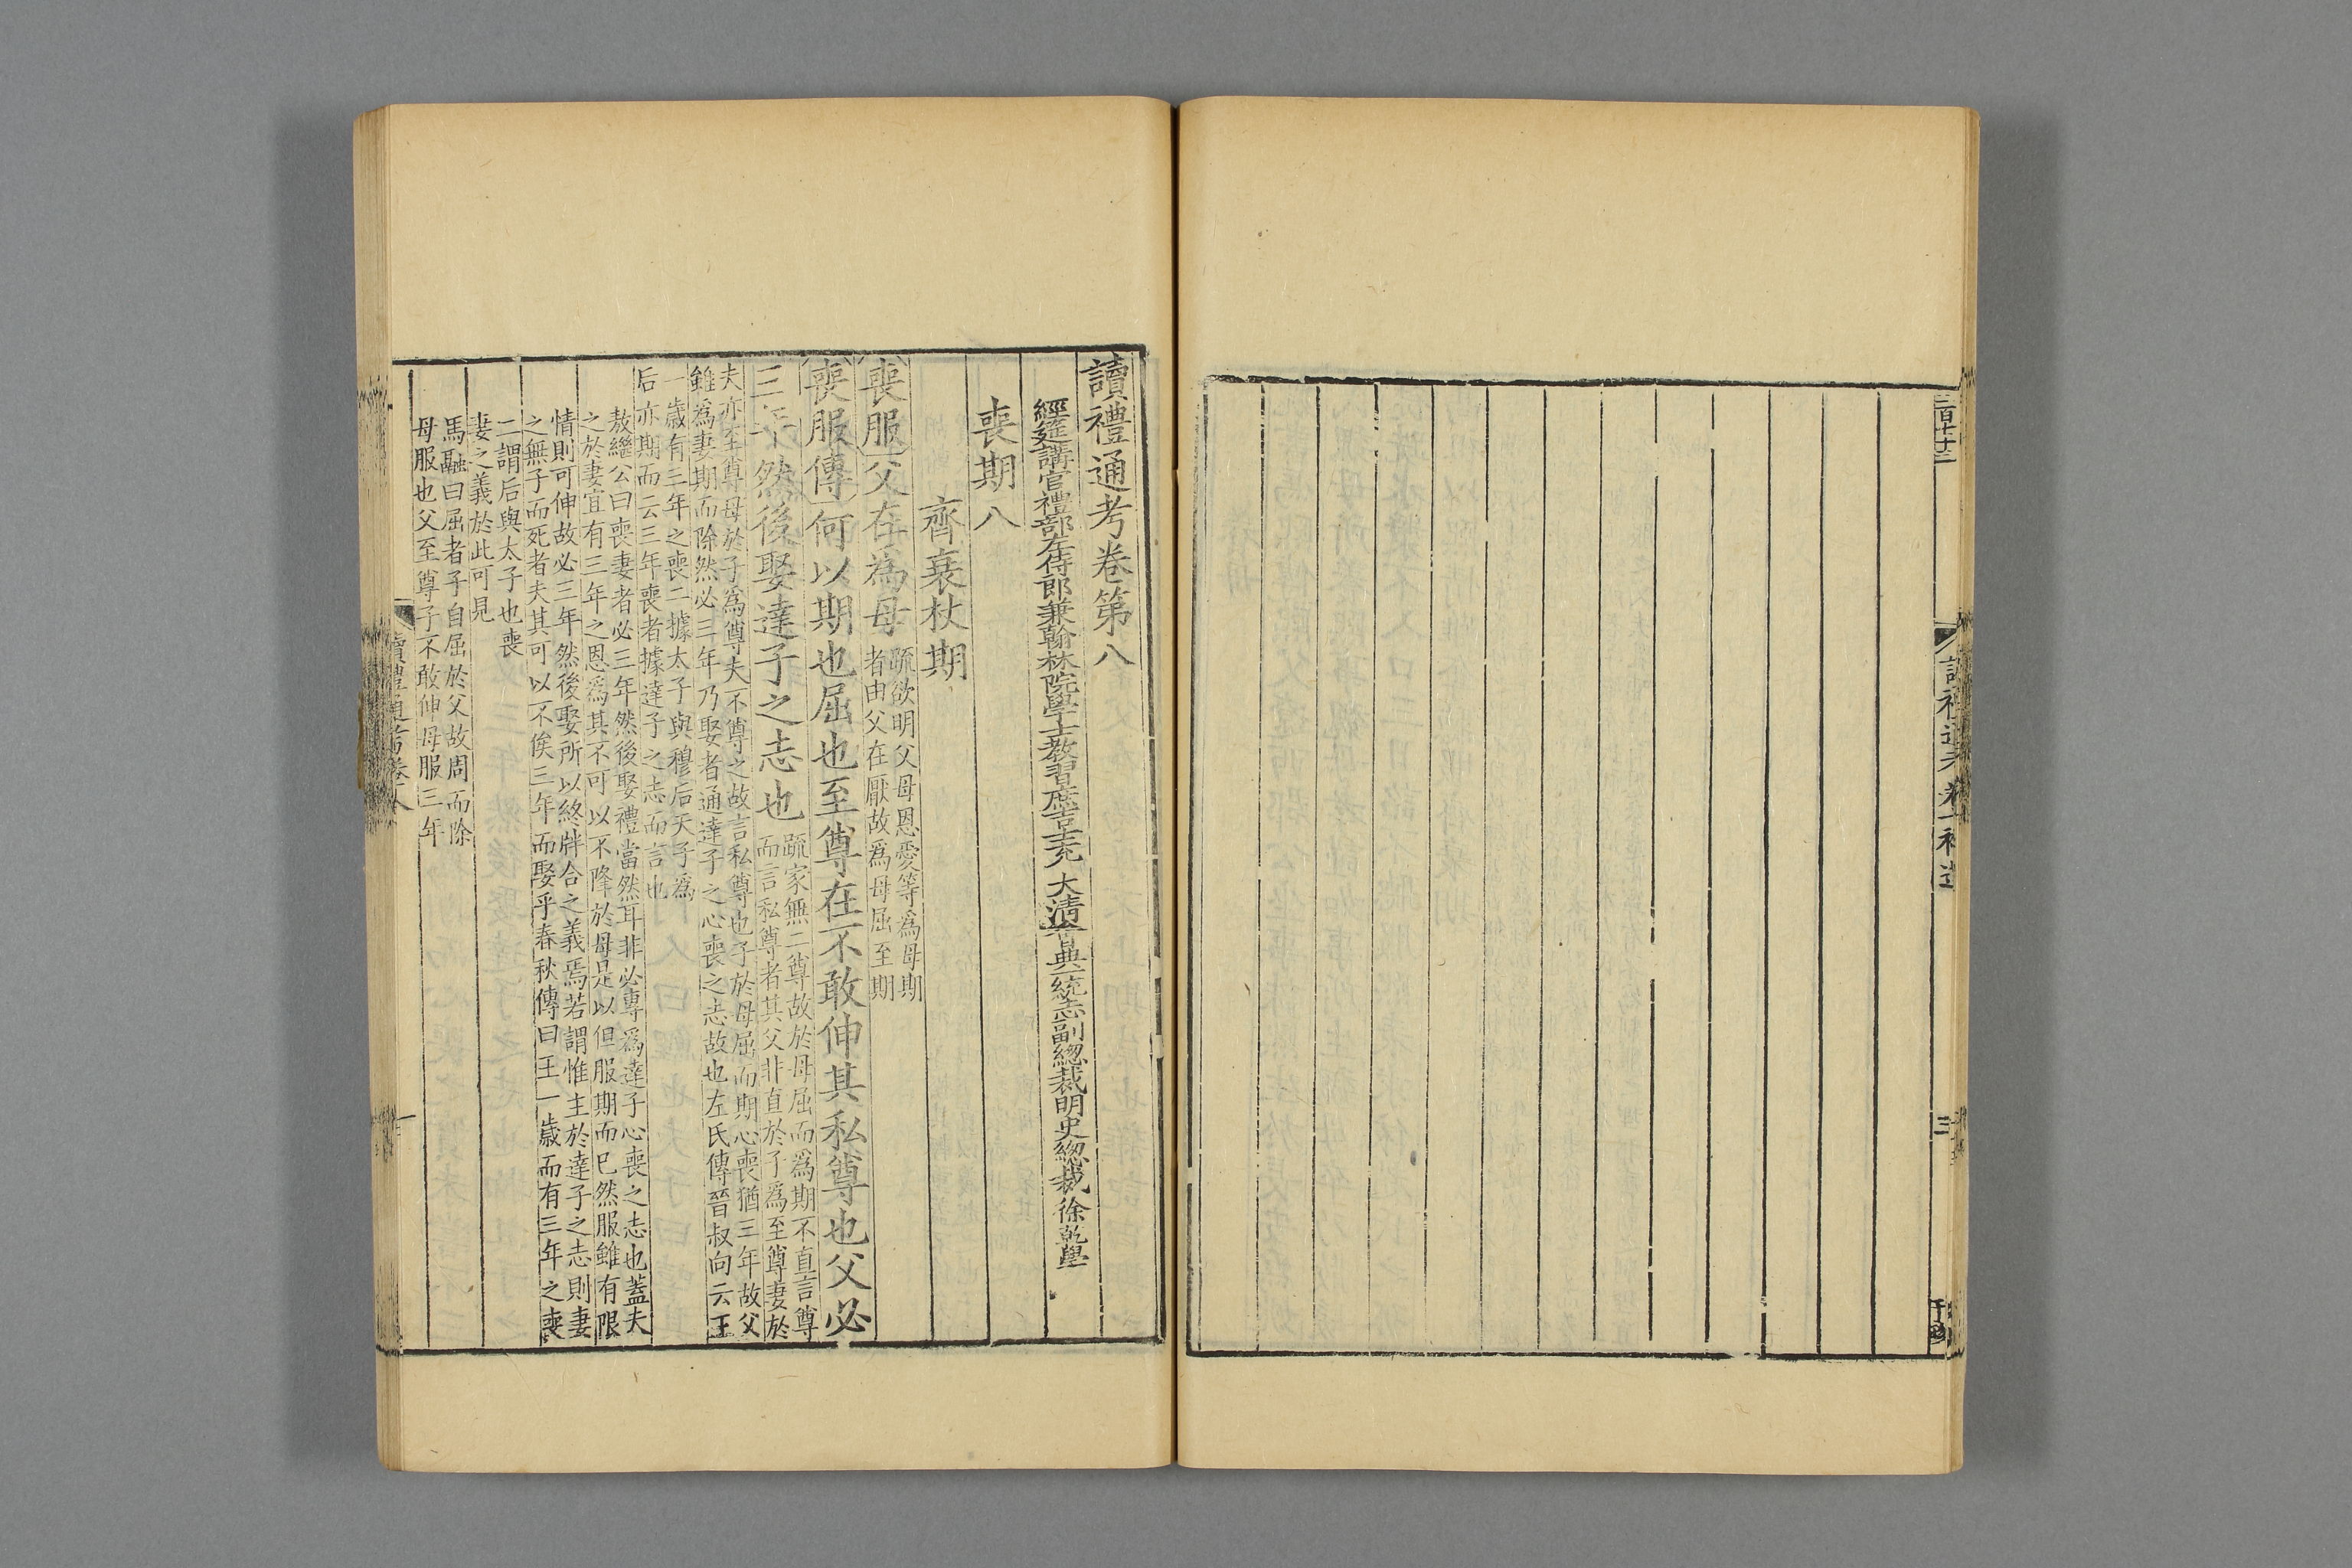 讀禮通考卷第八
經筵講官禮部左侍郎兼翰林院學士教習庶吉士充 大清會典一統志副總裁明史總裁徐乾學
喪期八
齊衰杖期
喪服父在為母
疏欲明父母恩愛等為母期
者由父在厭故為母屈至期
喪服傳何以期也屈也至尊在不敢伸其私尊也父必
三年然後娶達子之志也
疏家無二尊故於母屈而為期不直言尊
而言私尊者其父非直於子為至尊妻於
夫亦至尊母於子為尊夫不尊之故言私尊也子於母屈而期心喪猶三年故父
雖為妻期而除然必三年乃娶者通達子之心喪之志故也左氏傳晉叔向云王
一歲有三年之喪二據太子與穆后天子為
后亦期而云三年喪者據達子之志而言也
敖繼公曰喪妻者必三年然後娶禮當然耳非必專為達子心喪之志也蓋夫
之於妻宜有三年之恩為其不可以不降於母是以但服期而已然服雖有限
情則可伸故必三年然後娶所以終牉合之義焉若謂惟主於達子之志則妻
之無子而死者夫其可以不俟三年而娶乎春秋傳曰王一歲而有三年之喪
二謂后與太子也喪
妻之義於此可見
馬融曰屈者子自屈於父故周而除
母服也父至尊子不敢伸母服三年
讀禮通考卷八
一
三